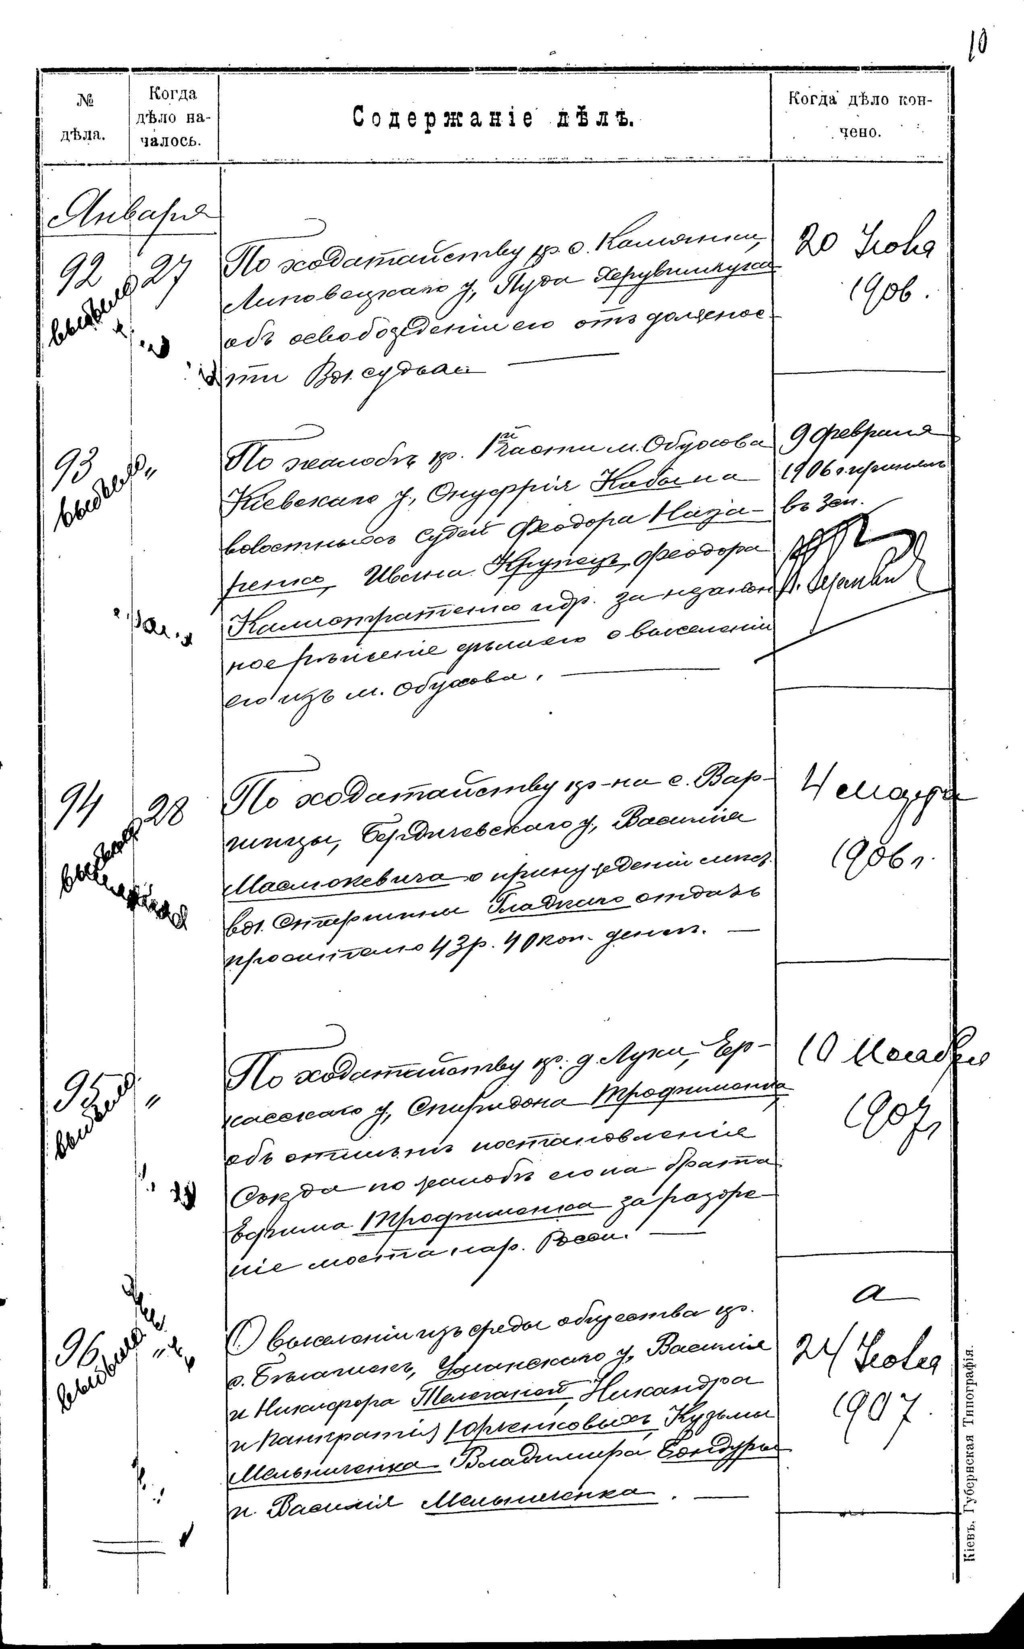 10
№ дѣла.
Когда дѣло началось.
Содержаніе дѣлъ.
Когда дѣло кончено.
Января
92 27 По ходатайству кр. с. Камянки,
Липовецкаго у, Пуда Херувимчука
объ освобожденіи его отъ должнос-
ти Вол. судьи
20 Іюня
1906.
выбыло
93 " По жалобѣ кр. 1й части м. Обухова
Кіевскаго у, Онуфрія Кабына на
волостныхъ судей Феодора Наза-
ренко, Ивана Крупецъ, Феодора
Калистратенко и др. за незакон
ное рѣшеніе дѣла его о выселеніи
его изъ м. Обухова.
9 февраля
1906 г. принялъ
въ Зас.
выбыло
94 28 По ходатайству кр-на с. Вар-
шицы, Бердичевскаго у, Василія
Маслюкевича о принужденіи мѣст.
вол. Старшины Гладкаго отдать
просителю 43 р. 40 коп. денег.
4 Марта
1906 г.
95 " По ходатайству кр. д. Луки, Чер-
касскаго у, Спиридона Трофименка
объ отмѣнѣ постановленія
Съѣзда по жалобѣ его на брата
Ефима Трофименка за разоре-
ніе моста на р. Росси.
10 Ноября
1907 г.
выбыло
96 О выселеніи изъ среды общества кр.
с. Бѣлашекъ, Уманскаго у, Василія
и Никифора Телеганей, Никандра
и Панкратія Юрьенковыхъ, Кузьмы
Мельниченка Владимира Бондуры
и Василія Мельниченка.
24 Іюля
1907.
выбыло
Кіевъ. Губернская Типографія.